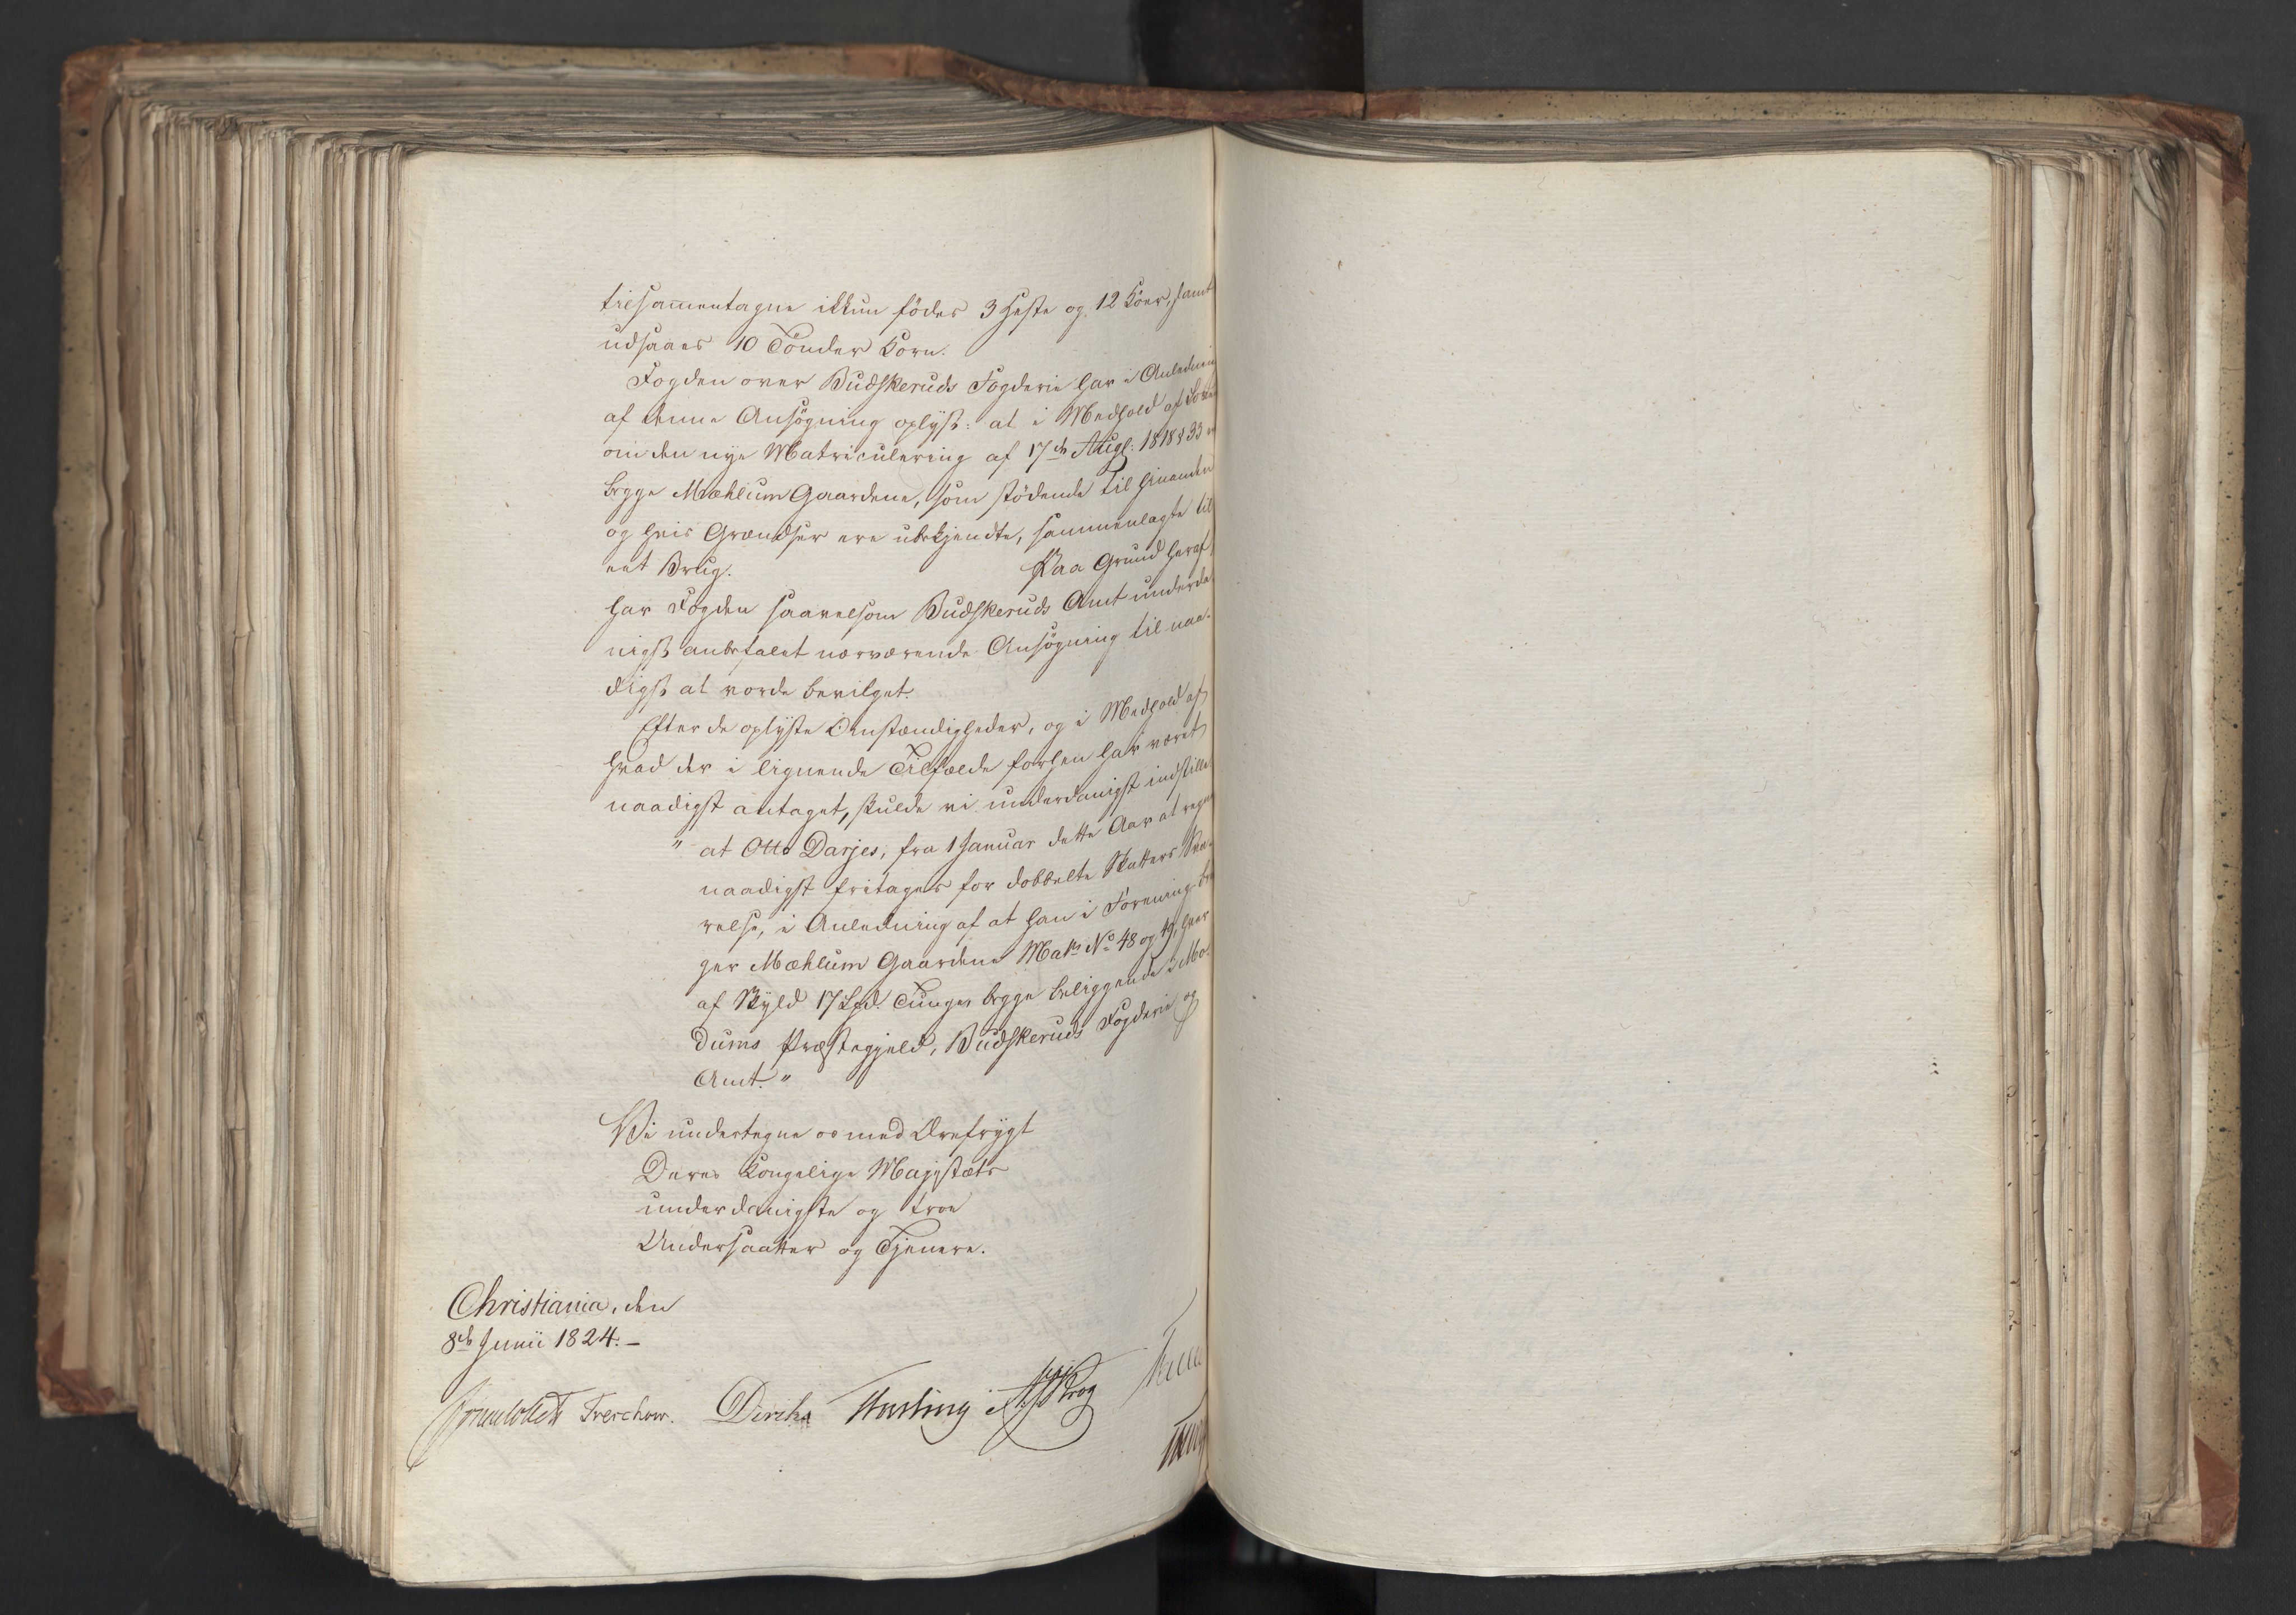 tilsam̄entagne ikkun födes 3 Heste og 12 Köer, samt
udsaaes 10 Tönder Korn.
Fogden over Budskeruds Fogderie har i Anlednin
af denne Ansögning oplyst: at i Medhold af Loven
om den nye Matriculering af 17de Augl: 1818 § 33 er
begge Mæhlum Gaardene, som stödende til hinanden
og hvis Grændser ere ubekjendte, sammenlagte til
eet Brug. Paa Grund heraf
har Fogden saavelsom Budskeruds Amt underda
nigst anbefalet nærværende Ansögning til naa-
digst at vorde bevilget.
Efter de oplyste Omstændigheder, og i Medhold af
hvad der i lignende Tilfælde forhen har været
naadigst antaget, skulde vi underdanigst indstille
" at Otto Darjes, fra 1 Januar dette Aar at regne
naadigst fritages for dobbelte Skatters Sva-
relse, i Anledning af at han i Forening bru
ger Mæhlum Gaardene Matr No 48 og 49, hver
af Skyld 17 Lpd. Tunge, begge beliggende i Mo-
dums Præstegjeld, Budskeruds Fogderie og
Amt."
Vi undertegne os med Ærefrygt
Deres Kongelige Majestæts
underdanigste og troe
Undersaatter og Tjenere.
Christiania, den
8de Junii 1824.-
Treschow. Diriks Fasting Krog